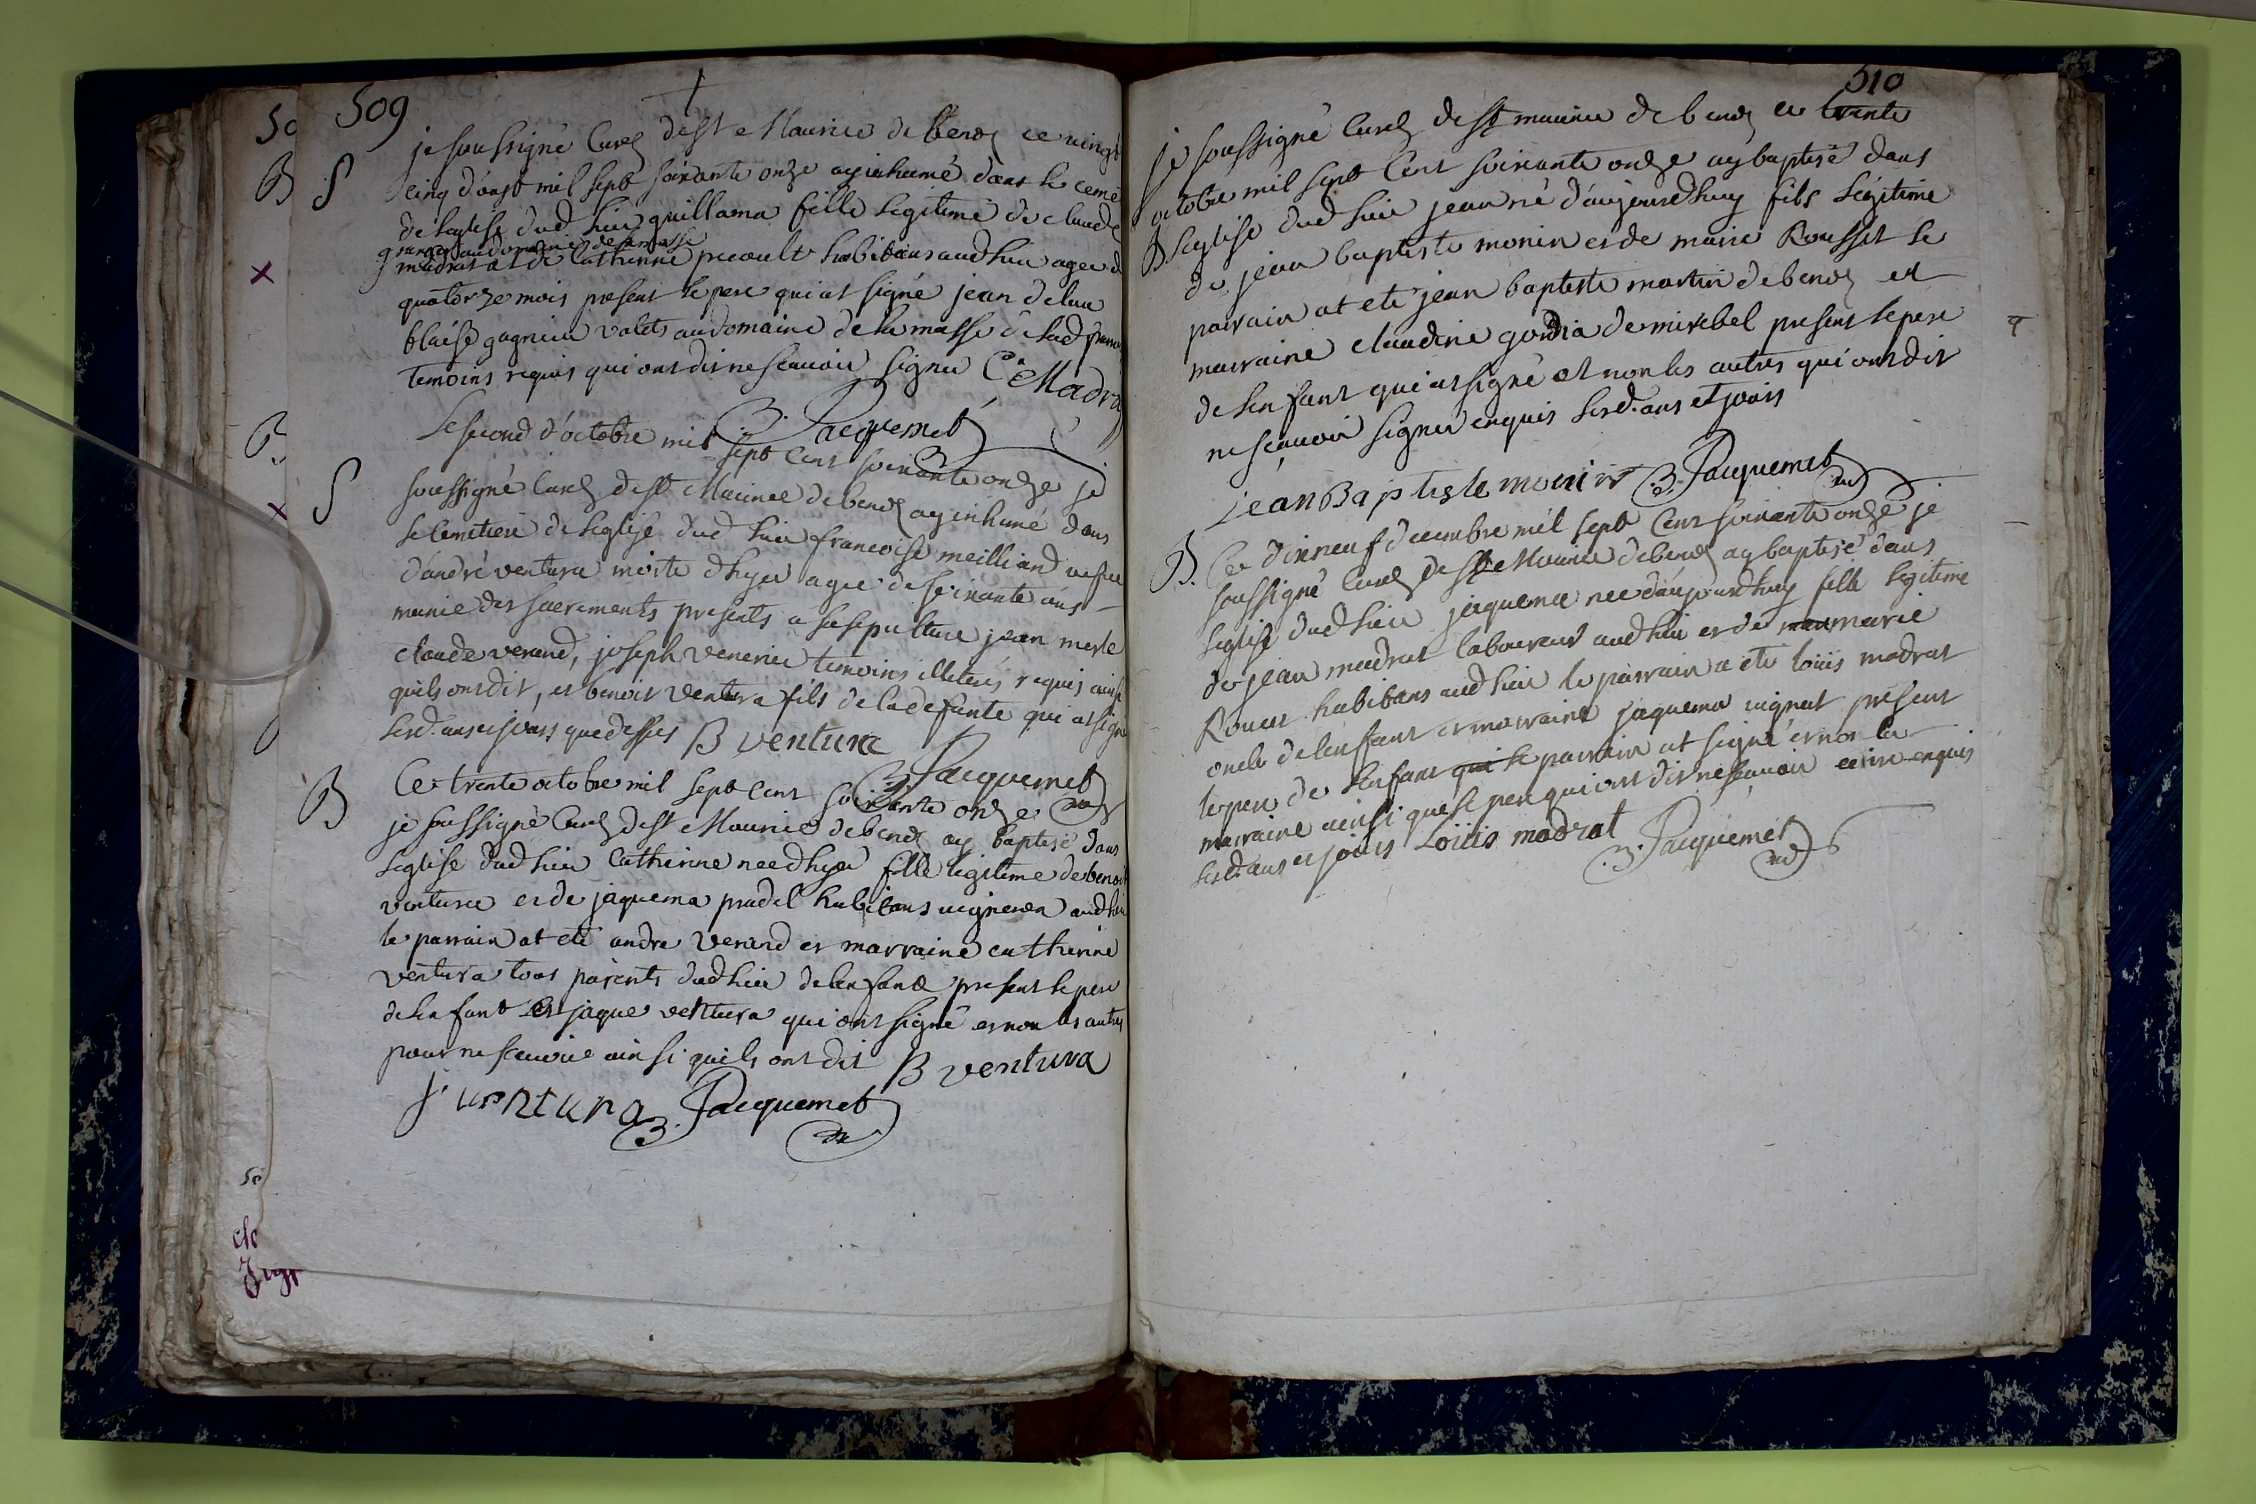 509
S
je soussigné Curé de St Maurice de benoz ce vingt
cinq d'aust mil sept soixante onze ay inhumé dans le ceme
de leglise dud lieu guillama fille legitime de claude
granger au domaine de la masse
madrat et de Catherine habitans aud lieu agee d
quatorze mois present le pere qui at signé jean
blaise gagnieu valets au domaine de la masse de lad
temoins requis qui ont dit ne scavoir signer C Madra
B. Jacquemet
S
Le second d'octobre mil sept cent soixante onze je
soussigné Curé de St Maurice de benoz ay inhumé dans
le Cemetiere de leglise dud lieu francoise meilliand vefve
d'andré ventura morte d'hyer agee de soixante ans
munie des sacrements presents a sa sepulture jean merle
claude verand, joseph venerier temoins illeterés requis ainsi
qu'ils ont dit, et benoit ventura fils de la defunte qui at signé
lesd. ans et jours que dessus B ventura
B. Jacquemet
B
Ce trente octobre mil sept cent soixante onze
je soussigné Curé de St Maurice de benoz ay baptisé dans
leglise dud lieu Catherine nee d'hyer fille legitime de benoit
ventura et de jaquema pradel habitans vigneron aud lieu
le parrain at eté andre Verand et marraine catherine
ventura tous parents dud lieu de lenfant present le pere
de lenfant et jaque ventura qui ont signé et non les autres
pour ne scavoir ainsi qu'ils ont dit B ventura
J ventura B. Jacquemet
510
je soussigné Curé de St maurice de benoz ce trente
octobre mil sept Cent soixante onze ay baptisé dans
B. leglise dud lieu jean né d'aujourdhuy fils legitime
de jean baptiste monin et de marie Rousset le
parrain at eté jean baptiste martin de benoz et
marraine claudine gordia de mirebel present le pere
de lenfant qui at signé et non les autres qui ont dit
ne sçavoir signer enquis lesd. ans et jours
jean Baptiste monin B. Jacquemet
B. Ce dix neuf decembre mil sept Cent soixante onze je
soussigné Curé de St Maurice de benoz ay baptisé dans
leglise dud lieu jaquema nee d'aujourdhuy fille legitime
de jean madrat laboureur aud lieu et de marie
Rouet habitans aud lieu le parrain a eté loüis madrat
oncle de lenfant et marraine jaquema vignat présent
le pere de lenfant qui le parrain at signé et non la
marraine ainsi que le pere qui ont dit ne sçavoir ecrire enquis
lesd. ans et jours Loüis madrat
B. Jacquemet